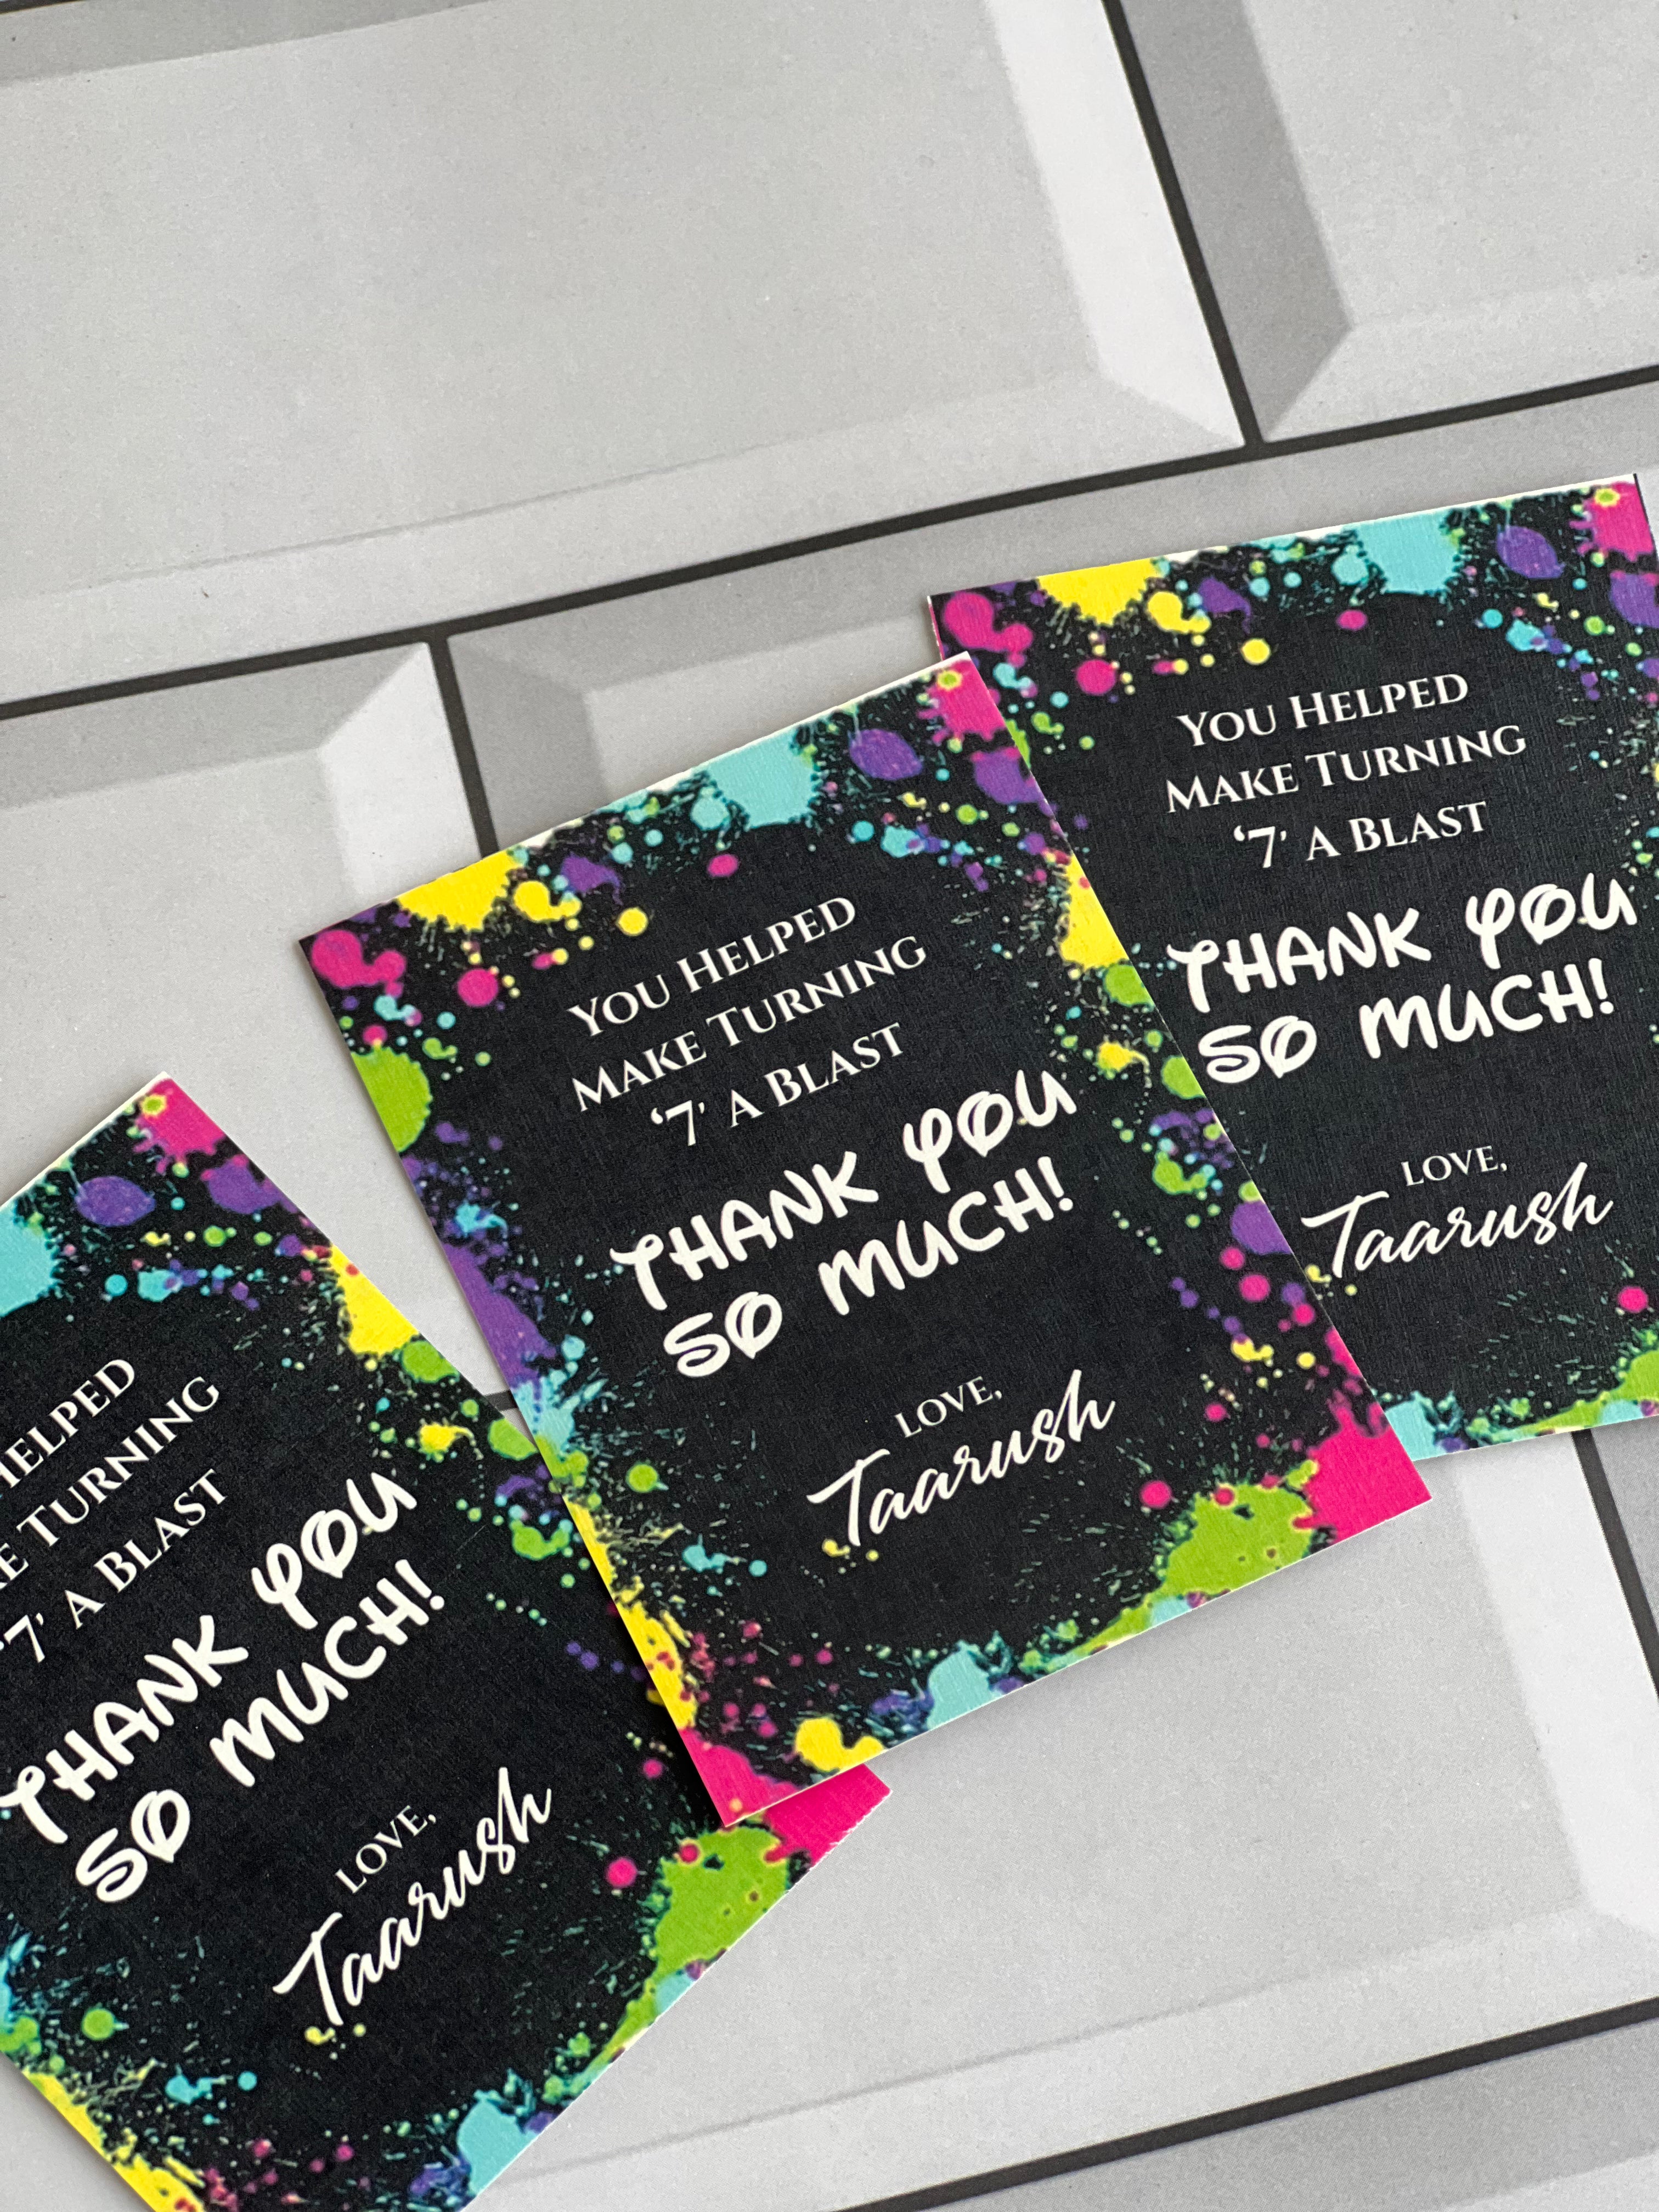 You Helped
Make Turning
‘7’ A Blast
THANK YOU
SO MUCH!
LOVE,
Taarush
You Helped
Make Turning
‘7’ A Blast
THANK YOU
SO MUCH!
LOVE,
Taarush
Turning
‘7’ A Blast
THANK YOU
SO MUCH!
LOVE,
Taarush